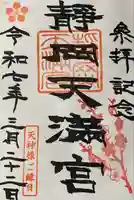 参拝記念
静岡天満宮
天神様ご縁日
令和七年三月二十二日